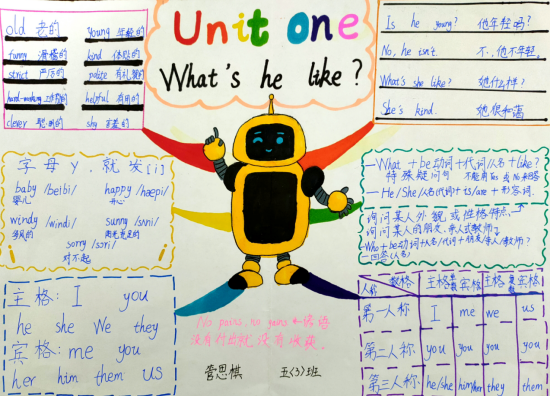 Unit one
What's he like?
old 老的 young 年轻的
funny 滑稽的 kind 体贴的
strict 严厉的 polite 有礼貌的
hard-working helpful 有用的
clever 聪明的 shy 害羞的
Is he young? 他年轻吗?
No, he isn't. 不,他不年轻。
What's she like? 她什么样?
She's kind 她很和蔼
字母Y,就发[i]
baby /beibi/ happy /hæpi/
婴儿 开心
windy /windi/ sunny /sʌni/
有风的
sorry /sɒri/
对不起
主格: I you
he she We they
宾格: me you
her him them us
What + be动词+代词/人名+like?
特殊疑问句 不能用Yes或No来回答
He/She/人名/代词+is/are+形容词.
询问某人外貌或性格特点
询问某人的朋友,亲人或教师
Who+be动词+人名/代词+朋友/亲人/教师?
回答(人名)
人称 数格 主格 宾格 主格 宾格
第一人称 I me we us
第二人称 you you you you
第三人称 he/she him/her they them
No pains, no gains
没有付出就没有收获
管思棋 五(3)班